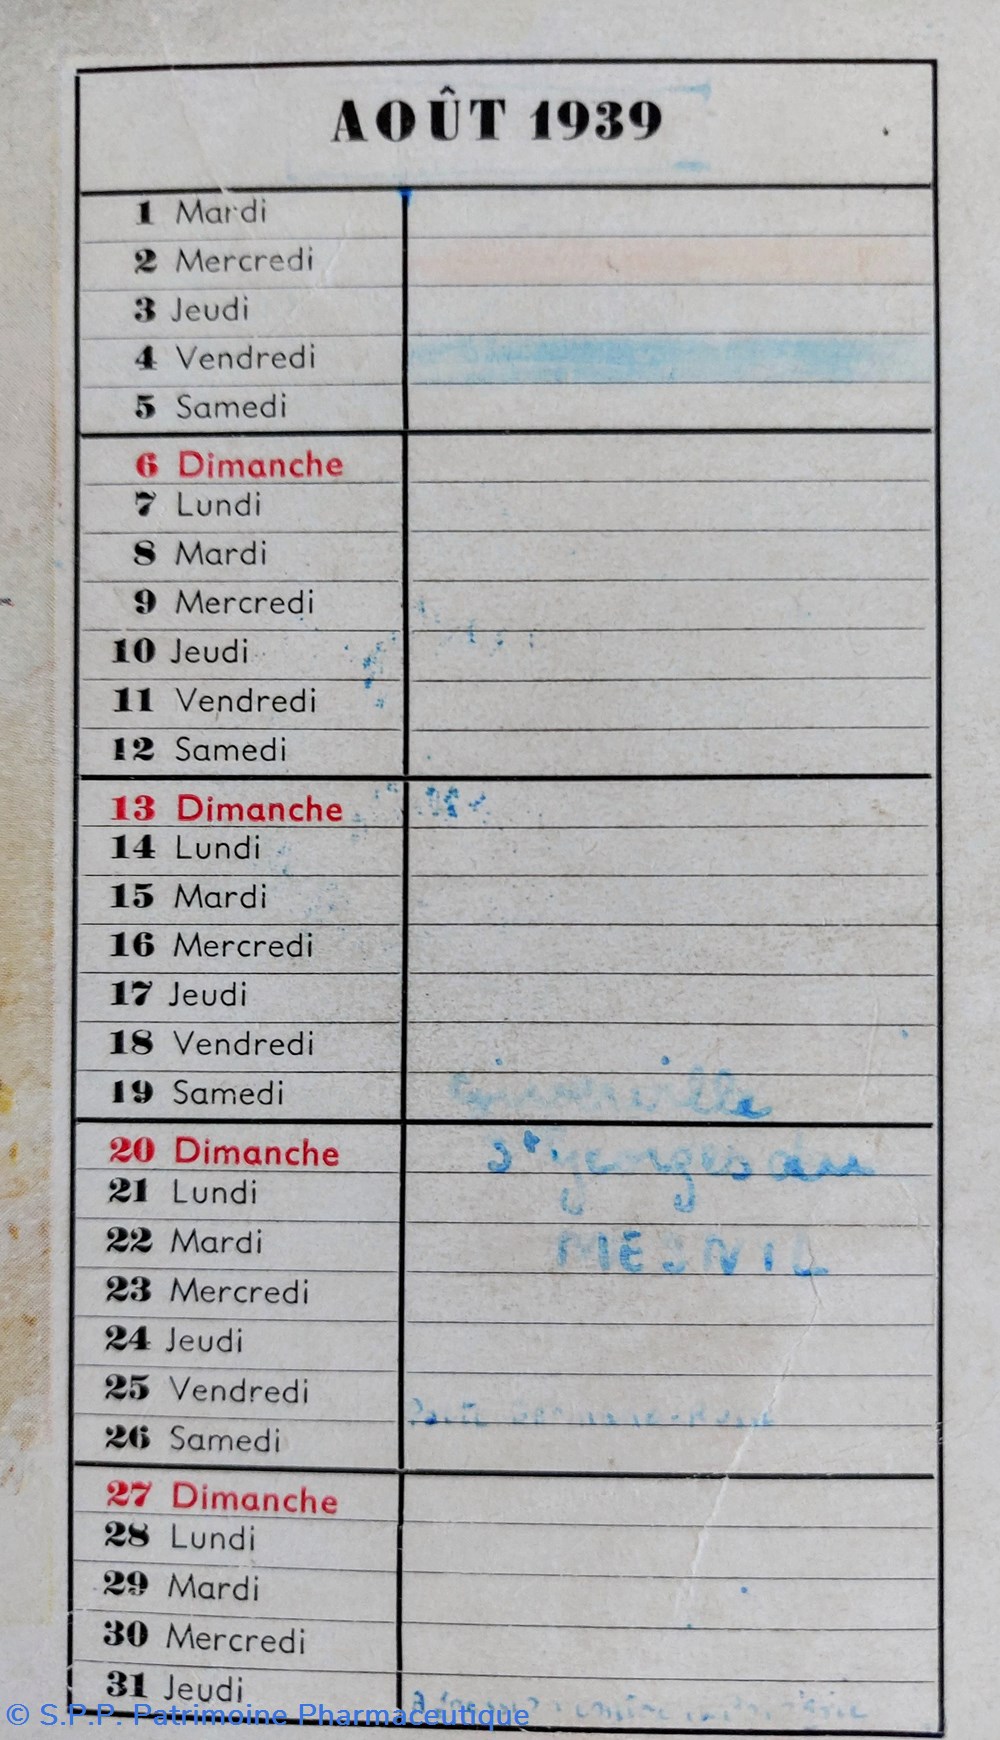 AOÛT 1939
1 Mardi
2 Mercredi
3 Jeudi
4 Vendredi
5 Samedi
6 Dimanche
7 Lundi
8 Mardi
9 Mercredi
10 Jeudi
11 Vendredi
12 Samedi
13 Dimanche
14 Lundi
15 Mardi
16 Mercredi
17 Jeudi
18 Vendredi
19 Samedi
20 Dimanche
21 Lundi
22 Mardi MESNIL
23 Mercredi
24 Jeudi
25 Vendredi
26 Samedi
27 Dimanche
28 Lundi
29 Mardi
30 Mercredi
31 Jeudi
© S.P.P. Patrimoine Pharmaceutique